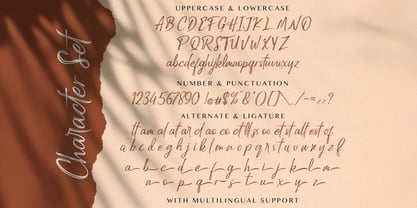 Character Set
UPPERCASE & LOWERCASE
ABCDEFGHIJKLMNO
PQRSTUVWXYZ
abcdefghijklmnopqrstuvwxyz
NUMBER & PUNCTUATION
1234567890
ALTERNATE & LIGATURE
a b c d e f g h i j k l m n o p q r s t u v w x y z
a b c d e f g h i j k l m
n o p q r s t u v w x y z
WITH MULTILINGUAL SUPPORT